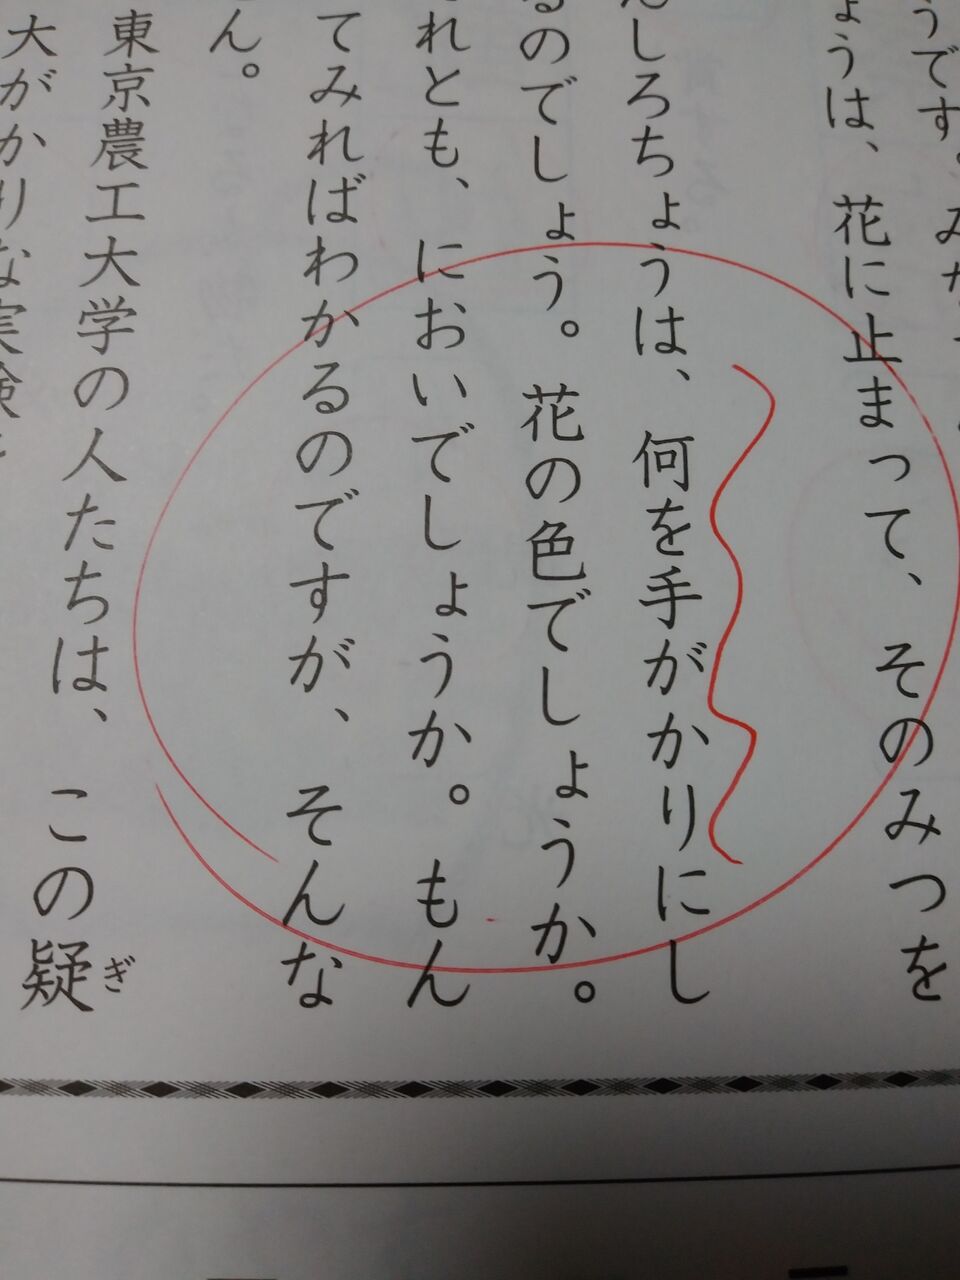 うです。
ょうは、花に止まって、そのみつを
んしろちょうは、何を手がかりにし
るのでしょう。花の色でしょうか。
れとも、においでしょうか。もん
てみればわかるのですが、そんな
ん。
東京農工大学の人たちは、この疑
ぎ
大がかりな実験を